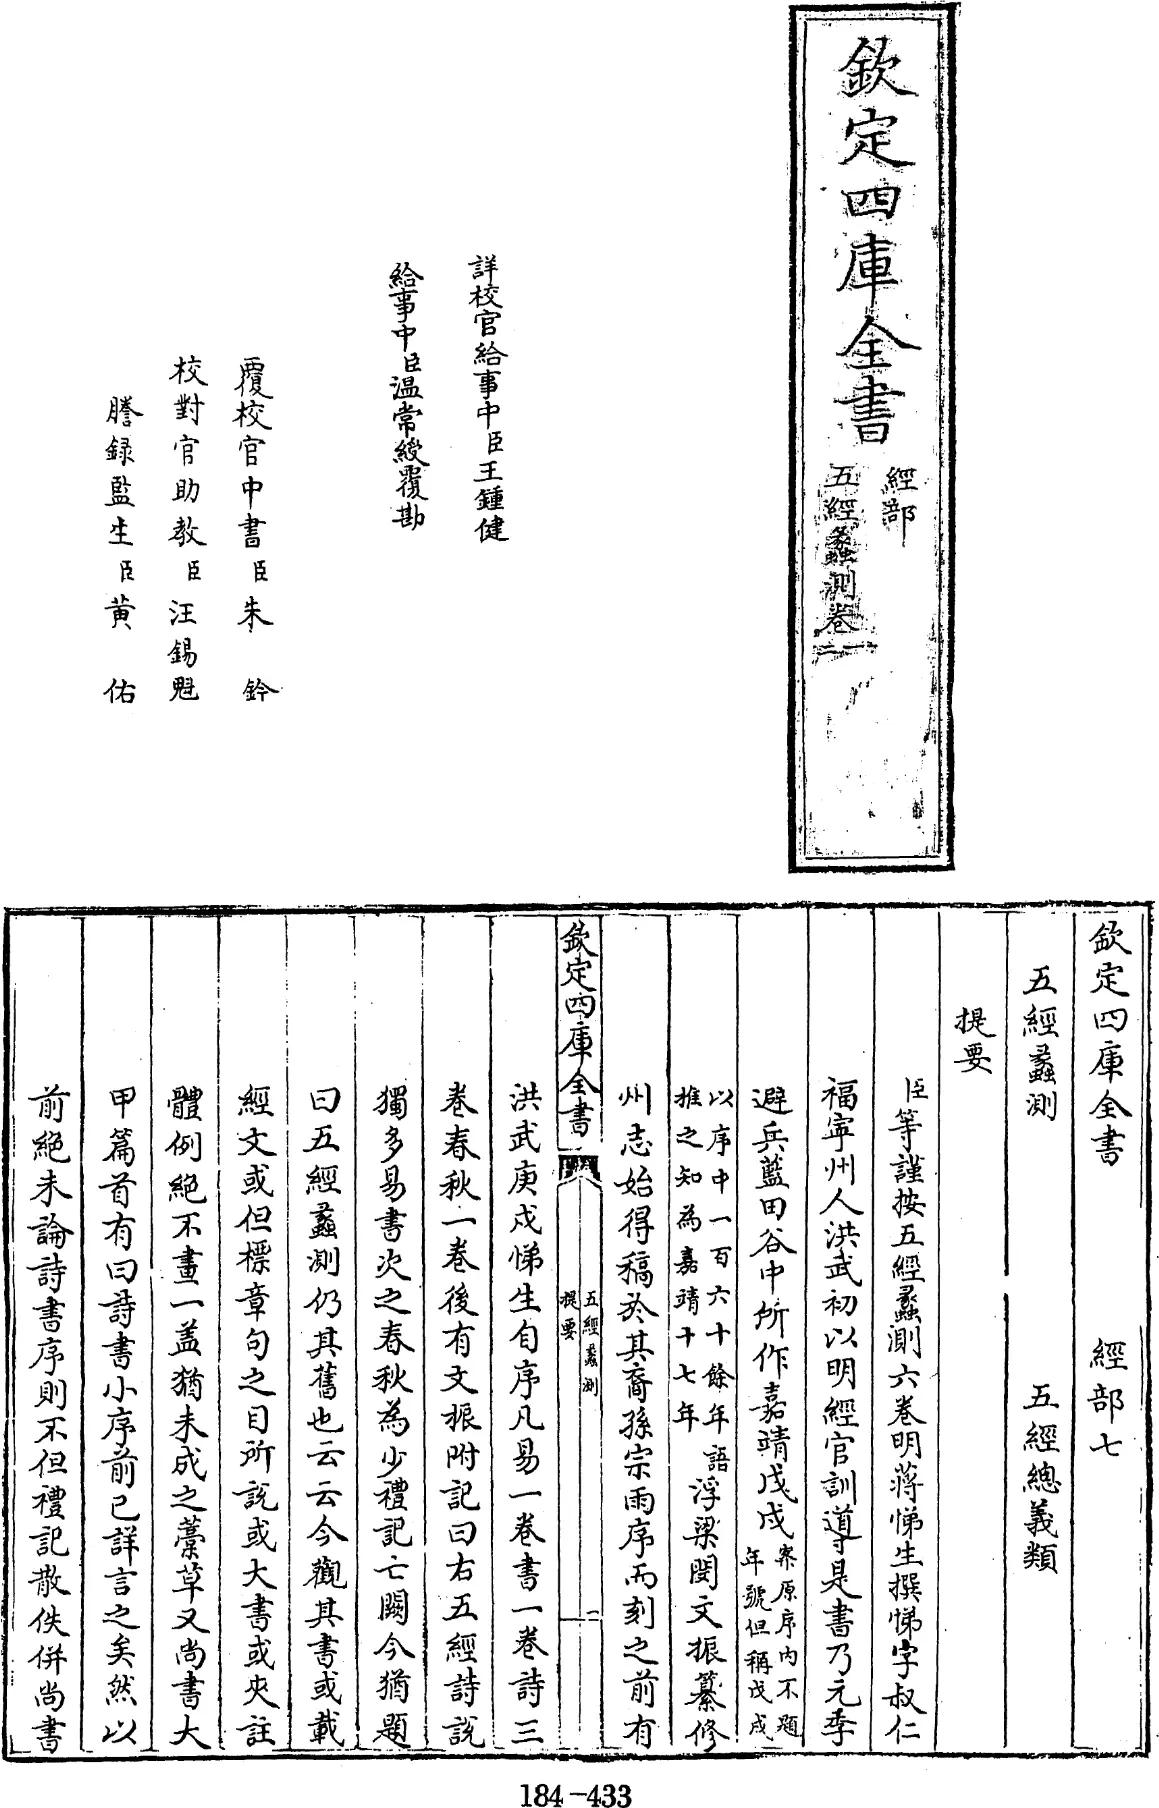 欽定四庫全書
經部
五經蠡測卷一二
詳校官給事中臣王鍾健
給事中臣溫常綬覆勘
覆校官中書臣朱鈐
校對官助教臣汪錫魁
謄錄監生臣黃佑
欽定四庫全書 經部七
五經蠡測 五經總義類
提要
臣等謹按五經蠡測六卷明蔣悌生撰悌字叔仁
福寧州人洪武初以明經官訓導是書乃元季
避兵藍田谷中所作嘉靖戊戌案原序內不題年號但稱戊戌
以序中一百六十餘年語推之知為嘉靖十七年浮梁閔文振纂修
州志始得稿於其裔孫宗雨序而刻之前有
欽定四庫全書
五經蠡測
提要
一
洪武庚戌悌生自序凡易一卷書一卷詩三
卷春秋一卷後有文振附記曰右五經詩説
獨多易書次之春秋為少禮記亡闕今猶題
曰五經蠡測仍其舊也云云今觀其書或載
經文或但標章句之目所説或大書或夾註
體例絶不畫一盖猶未成之藁草又尚書大
甲篇首有曰詩書小序前已詳言之矣然以
前絶未論詩書序則不但禮記散佚併尚書
184-433